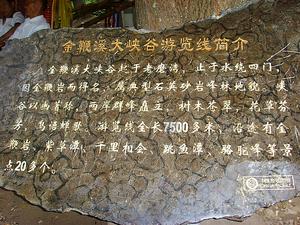 金鞭溪大峡谷游览线简介
金鞭溪大峡谷起于老磨湾,止于水绕四门,
因金鞭岩而得名。属典型石英砂岩峰林地貌。峡
谷以幽著称,两岸群峰直立,树木苍翠,花草芬
芳,鸟语蝉歌。游览线全长7500多米,沿途有金
鞭岩、紫草潭、千里相会、跳鱼潭、骆驼峰等景
点20多个。